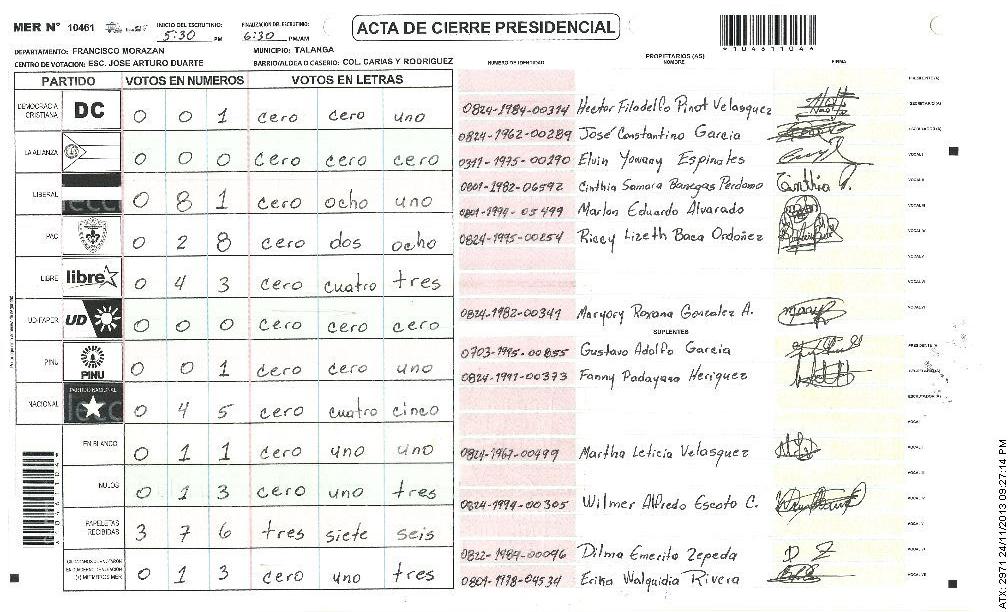 MER N° 10461 INICIO DEL ESCRUTINIO: 5:30 PM FINALIZACION DEL ESCRUTINIO: 6:30 PM/AM
ACTA DE CIERRE PRESIDENCIAL
DEPARTAMENTO: FRANCISCO MORAZAN MUNICIPIO: TALANGA
CENTRO DE VOTACION: ESC. JOSE ARTURO DUARTE BARRIO/ALDEA O CASERIO: COL. CARIAS Y RODRIGUEZ
NUMERO DE IDENTIDAD PROPIETARIOS (AS) NOMBRE FIRMA
PARTIDO VOTOS EN NUMEROS VOTOS EN LETRAS
DEMOCRACIA CRISTIANA DC 0 0 1 cero cero uno
LA ALIANZA 0 0 0 cero cero cero
LIBERAL 0 8 1 cero ocho uno
PAC 0 2 8 cero dos ocho
LIBRE libre 0 4 3 cero cuatro tres
UD-FAPER UD 0 0 0 cero cero cero
PINU PINU 0 0 1 cero cero uno
NACIONAL PARTIDO NACIONAL 0 4 5 cero cuatro cinco
EN BLANCO 0 1 1 cero uno uno
NULOS 0 1 3 cero uno tres
PAPELETAS RECIBIDAS 3 7 6 tres siete seis
0 1 3 cero uno tres
PRESIDENTE(A)
0824-1984-00314 Hector Filadelfo Pinot Velasquez SECRETARIO(A)
0824-1962-00289 José Constantino Garcia ESCRUTADOR(A)
0311-1975-00290 Elvin Yowany Espinales VOCAL I
0801-1982-06592 Cinthia Samara Banegas Perdomo Cinthia P. VOCAL II
0801-1994-05499 Marlon Eduardo Alvarado VOCAL III
0824-1995-00254 Riccy Lizeth Baca Ordoñez VOCAL IV
VOCAL V
VOCAL VI
0824-1982-00341 Maryory Roxana Gonzalez A. VOCAL VII
SUPLENTES
0703-1995-00855 Gustavo Adolfo Garcia PRESIDENTE(A)
0824-1991-00373 Fanny Padayasa Heriquez SECRETARIO(A)
ESCRUTADOR(A)
VOCAL I
0824-1967-00499 Martha Leticia Velasquez VOCAL II
VOCAL III
0824-1994-00305 Wilmer Alfredo Escoto C. VOCAL IV
VOCAL V
0822-1984-00096 Dilma Emerita Zepeda D Z VOCAL VI
0801-1978-04534 Erika Walquidia Rivera VOCAL VII
ATX: 2971 24/11/2013 09:27:14 PM